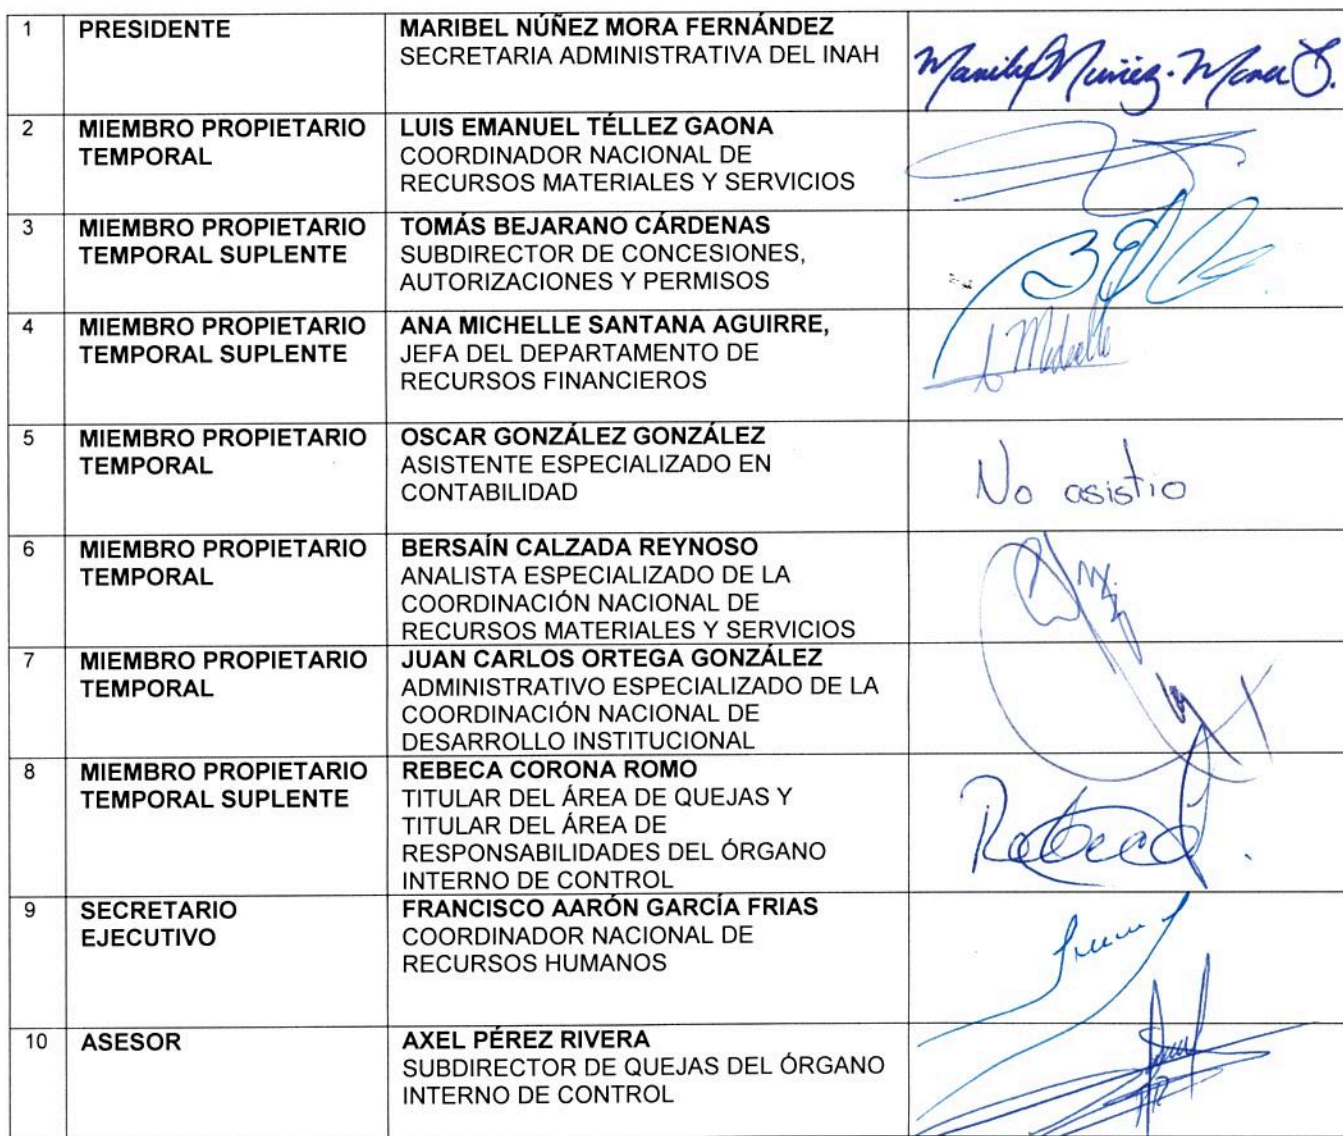 1 PRESIDENTE MARIBEL NÚÑEZ MORA FERNÁNDEZ
SECRETARIA ADMINISTRATIVA DEL INAH
Maribel Nuñez Mora F.
2 MIEMBRO PROPIETARIO TEMPORAL LUIS EMANUEL TÉLLEZ GAONA
COORDINADOR NACIONAL DE
RECURSOS MATERIALES Y SERVICIOS
3 MIEMBRO PROPIETARIO TEMPORAL SUPLENTE TOMÁS BEJARANO CÁRDENAS
SUBDIRECTOR DE CONCESIONES,
AUTORIZACIONES Y PERMISOS
4 MIEMBRO PROPIETARIO TEMPORAL SUPLENTE ANA MICHELLE SANTANA AGUIRRE,
JEFA DEL DEPARTAMENTO DE
RECURSOS FINANCIEROS
A Michelle
5 MIEMBRO PROPIETARIO TEMPORAL OSCAR GONZÁLEZ GONZÁLEZ
ASISTENTE ESPECIALIZADO EN
CONTABILIDAD
No asistio
6 MIEMBRO PROPIETARIO TEMPORAL BERSAÍN CALZADA REYNOSO
ANALISTA ESPECIALIZADO DE LA
COORDINACIÓN NACIONAL DE
RECURSOS MATERIALES Y SERVICIOS
7 MIEMBRO PROPIETARIO TEMPORAL JUAN CARLOS ORTEGA GONZÁLEZ
ADMINISTRATIVO ESPECIALIZADO DE LA
COORDINACIÓN NACIONAL DE
DESARROLLO INSTITUCIONAL
8 MIEMBRO PROPIETARIO TEMPORAL SUPLENTE REBECA CORONA ROMO
TITULAR DEL ÁREA DE QUEJAS Y
TITULAR DEL ÁREA DE
RESPONSABILIDADES DEL ÓRGANO
INTERNO DE CONTROL
Rebeca
9 SECRETARIO EJECUTIVO FRANCISCO AARÓN GARCÍA FRIAS
COORDINADOR NACIONAL DE
RECURSOS HUMANOS
10 ASESOR AXEL PÉREZ RIVERA
SUBDIRECTOR DE QUEJAS DEL ÓRGANO
INTERNO DE CONTROL